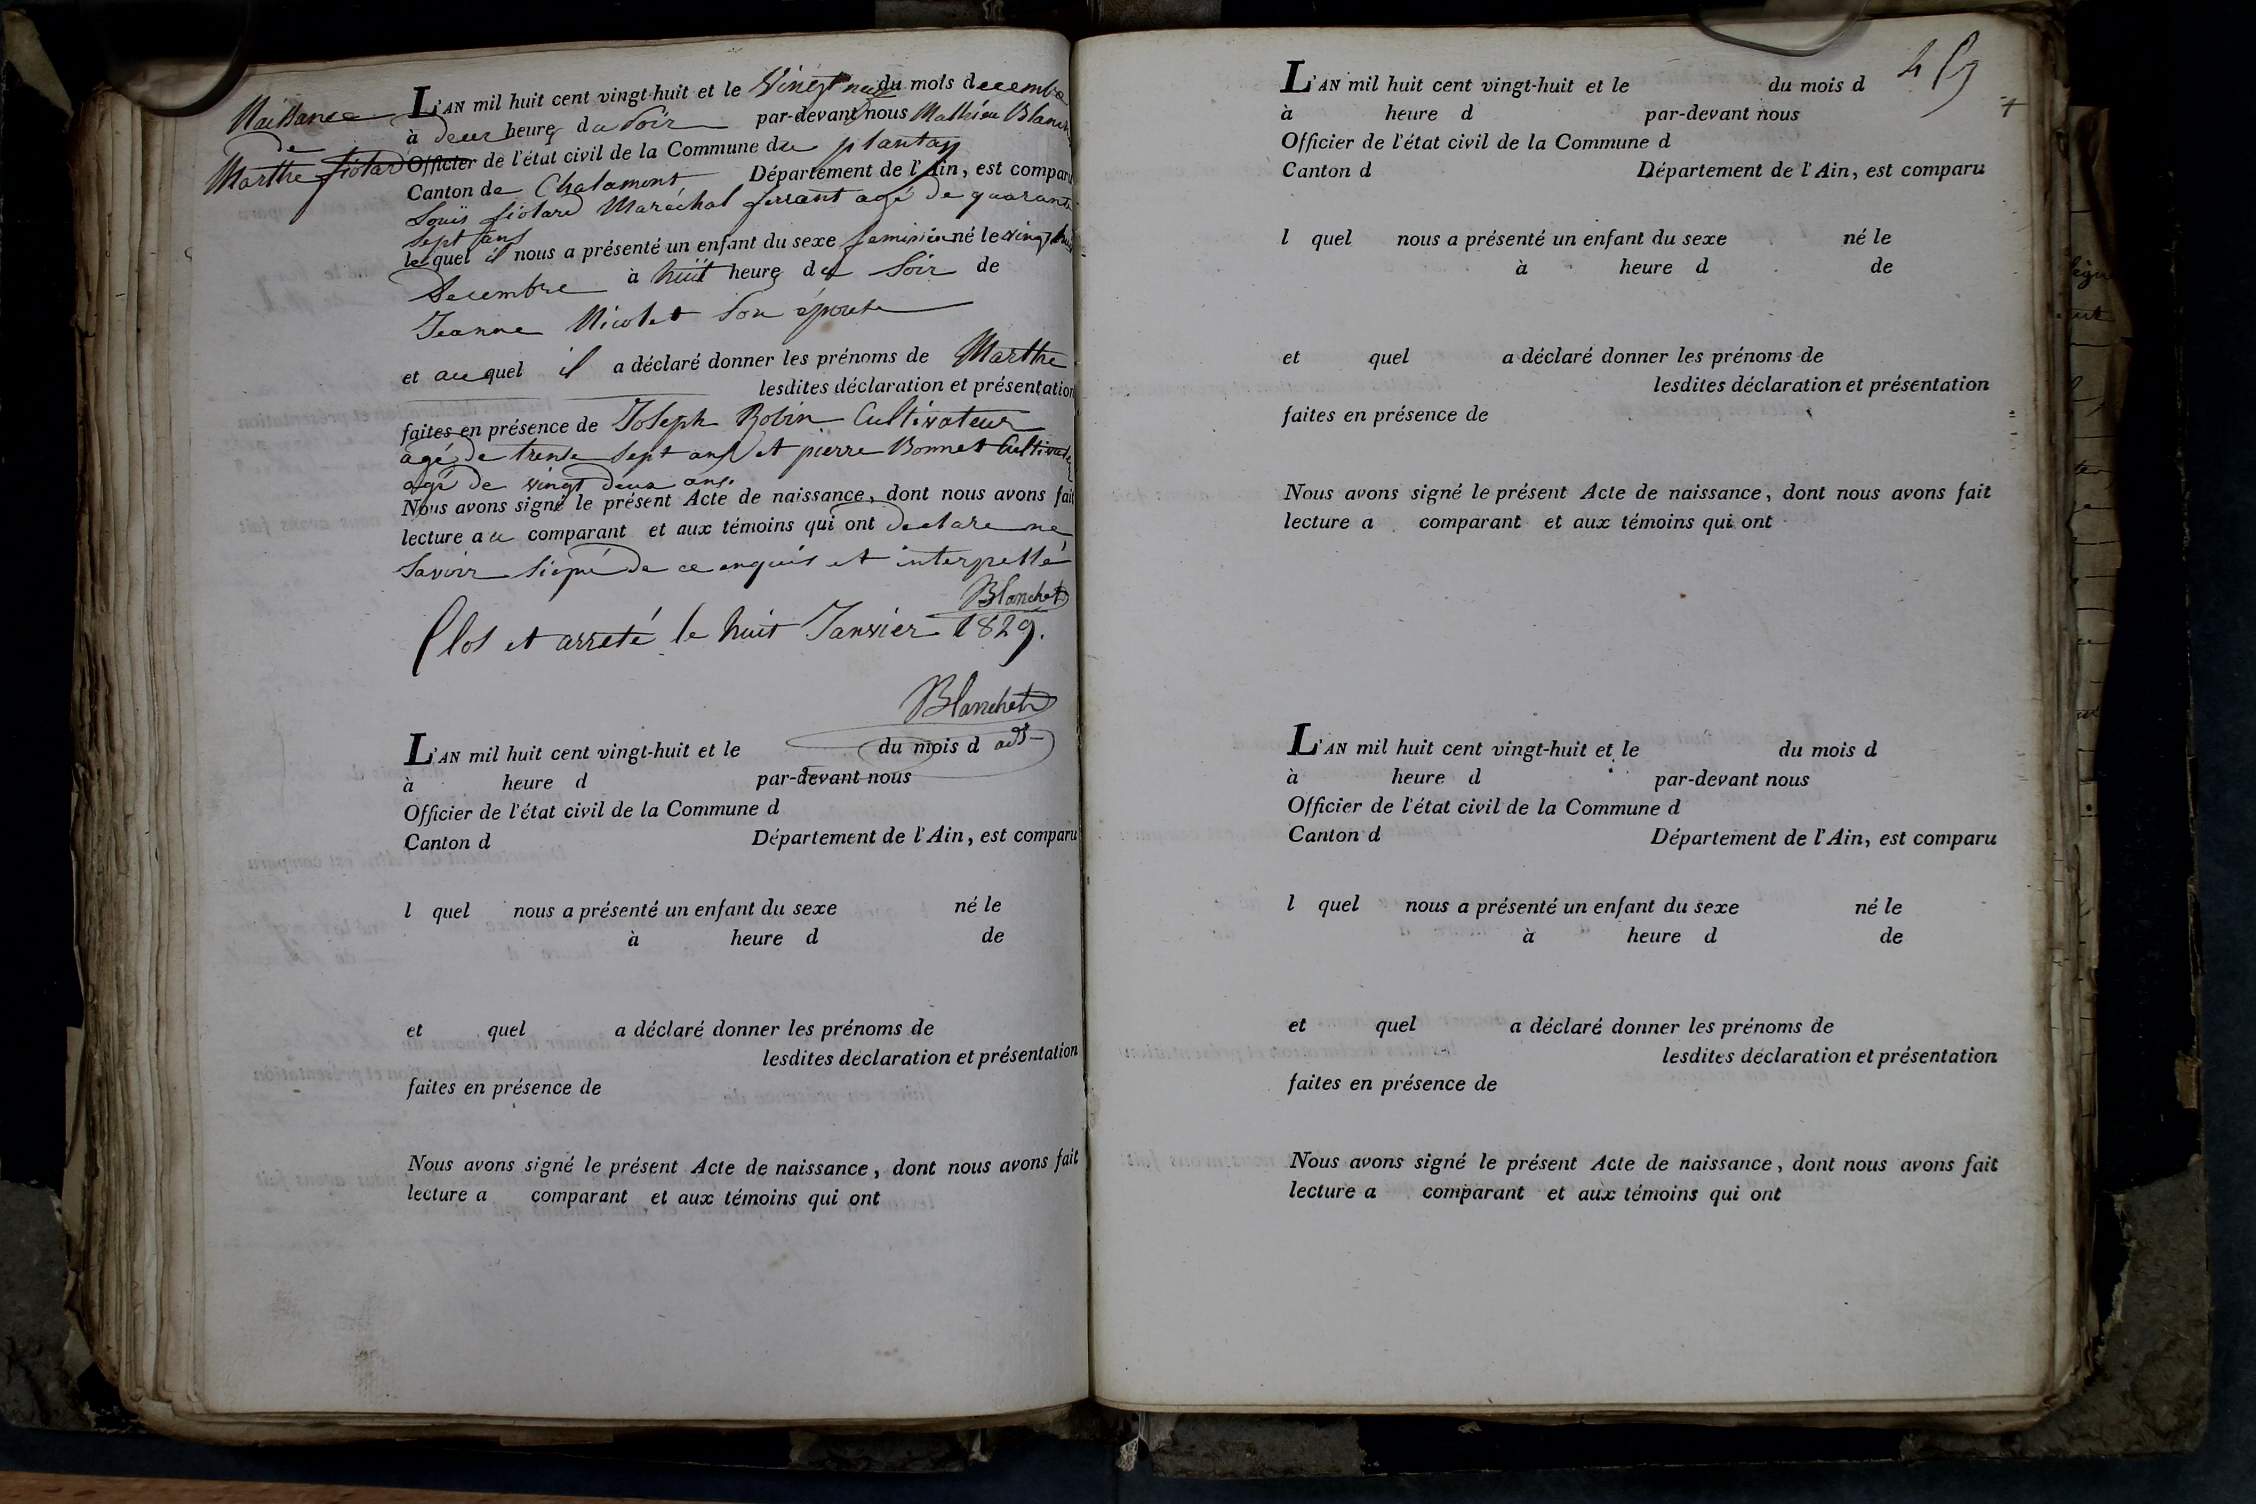 Naissance
de
Marthe fiolard
L'AN mil huit cent vingt-huit et le vingt neuf du mois decembre
à deux heures du soir par-devant nous Mathieu Blanchet
Officier de l'état civil de la Commune du plantay
Canton de Chalamont, Département de l'Ain, est comparu
Louis fiolard Maréchal ferrant agé de quarante
sept ans
lequel il nous a présenté un enfant du sexe feminin né le vingt huit
Decembre à huit heures du soir de
Jeanne Nicolet Son épouse
et au quel il a déclaré donner les prénoms de Marthe
lesdites déclaration et présentation
faites en présence de Joseph Robin Cultivateur
agé de trente sept ans et pierre Bonnet Cultivateur
agé de vingt deux ans.
Nous avons signé le présent Acte de naissance, dont nous avons fait
lecture au comparant et aux témoins qui ont declare ne
Savoir signé de ce enquis et interpellé
Blanchet
Clos et arreté le huit Janvier 1829.
Blanchet
adt
L'AN mil huit cent vingt-huit et le du mois d
à heure d par-devant nous
Officier de l'état civil de la Commune d
Canton d Département de l'Ain, est comparu
l quel nous a présenté un enfant du sexe né le
à heure d de
et quel a déclaré donner les prénoms de
lesdites déclaration et présentation
faites en présence de
Nous avons signé le présent Acte de naissance, dont nous avons fait
lecture a comparant et aux témoins qui ont
L'AN mil huit cent vingt-huit et le du mois d
à heure d par-devant nous
Officier de l'état civil de la Commune d
Canton d Département de l'Ain, est comparu
l quel nous a présenté un enfant du sexe né le
à heure d de
et quel a déclaré donner les prénoms de
lesdites déclaration et présentation
faites en présence de
Nous avons signé le présent Acte de naissance, dont nous avons fait
lecture a comparant et aux témoins qui ont
L'AN mil huit cent vingt-huit et le du mois d
à heure d par-devant nous
Officier de l'état civil de la Commune d
Canton d Département de l'Ain, est comparu
l quel nous a présenté un enfant du sexe né le
à heure d de
et quel a déclaré donner les prénoms de
lesdites déclaration et présentation
faites en présence de
Nous avons signé le présent Acte de naissance, dont nous avons fait
lecture a comparant et aux témoins qui ont